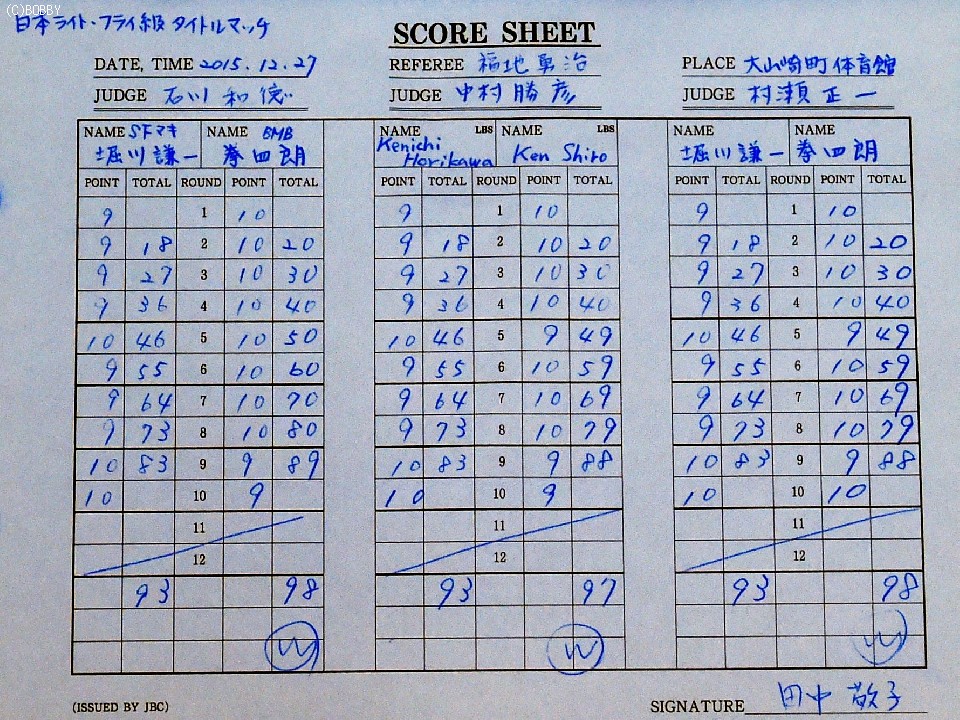 (C)BOBBY
日本ライト・フライ級タイトルマッチ
SCORE SHEET
DATE, TIME 2015.12.27 REFEREE 福地勇治 PLACE 大山崎町体育館
JUDGE 石川和徳 JUDGE 中村勝彦 JUDGE 村瀬正一
NAME SFマキ NAME BMB NAME LBS NAME LBS NAME NAME
堀川謙一 拳四朗 Kenichi Horikawa Ken Shiro 堀川謙一 拳四朗
POINT TOTAL ROUND POINT TOTAL POINT TOTAL ROUND POINT TOTAL POINT TOTAL ROUND POINT TOTAL
9 1 10 9 1 10 9 1 10
9 18 2 10 20 9 18 2 10 20 9 18 2 10 20
9 27 3 10 30 9 27 3 10 30 9 27 3 10 30
9 36 4 10 40 9 36 4 10 40 9 36 4 10 40
10 46 5 10 50 10 46 5 9 49 10 46 5 9 49
9 55 6 10 60 9 55 6 10 59 9 55 6 10 59
9 64 7 10 70 9 64 7 10 69 9 64 7 10 69
9 73 8 10 80 9 73 8 10 79 9 73 8 10 79
10 83 9 9 89 10 83 9 9 88 10 83 9 9 88
10 10 9 10 10 9 10 10 10
11 11 11
12 12 12
93 98 93 97 93 98
W W W
(ISSUED BY JBC) SIGNATURE 田中敬子